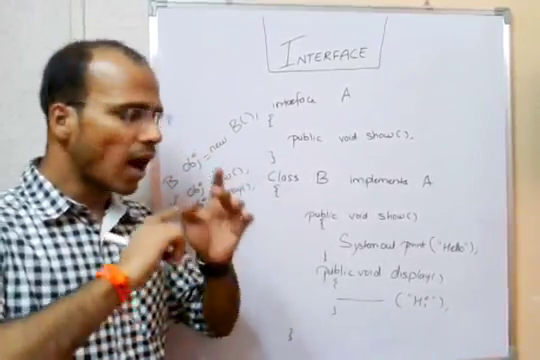 INTERFACE
interface A
{
public void show();
}
Class B implements A
{
public void show()
{
System out print ("Hello");
}
public void display()
{
("Hi");
}
}
B obj = new B();
obj.show();